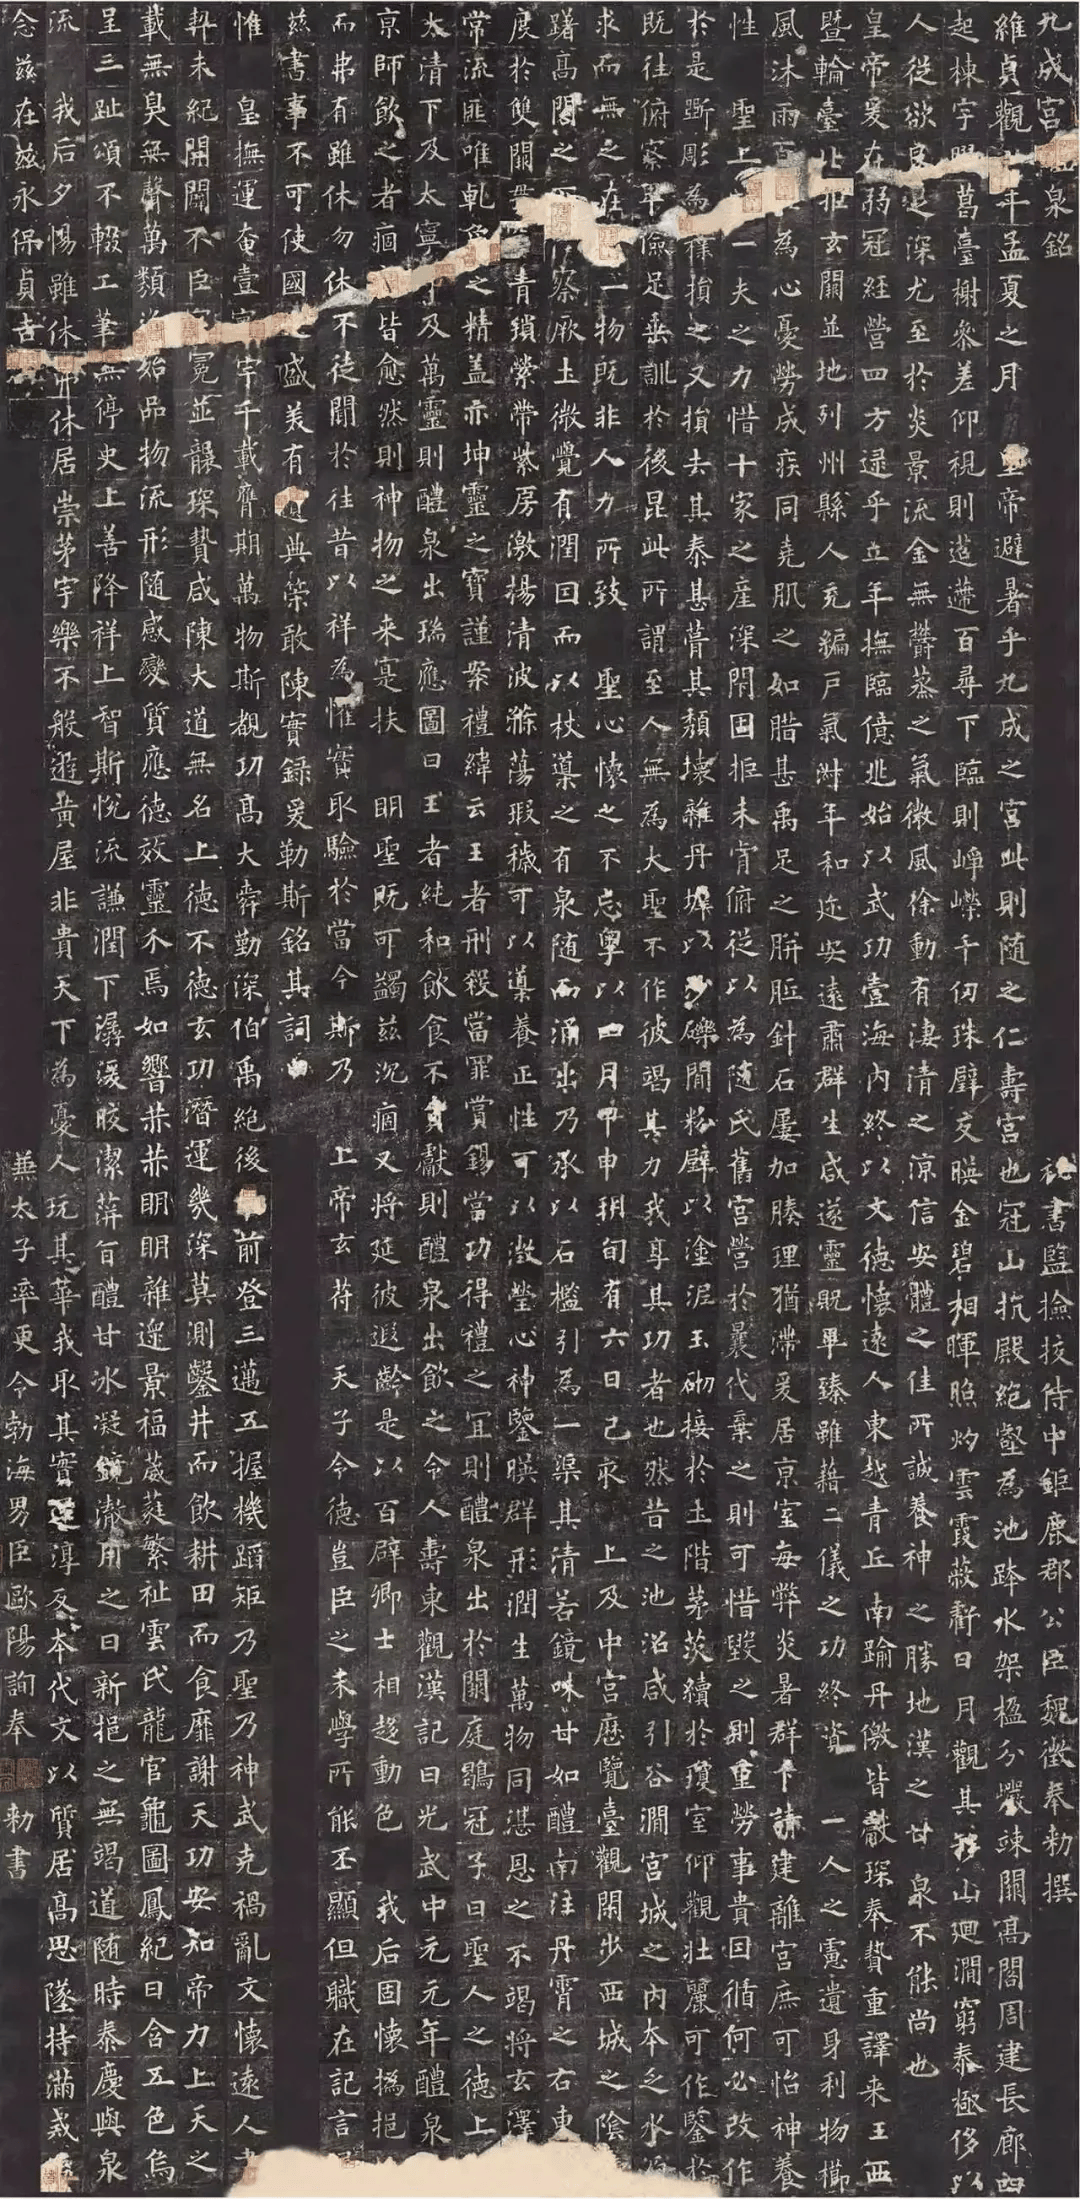 九成宮泉銘 秘書監撿挍侍中鉅鹿郡公臣魏徵奉勑撰
維貞觀年孟夏之月 皇帝避暑乎九成之宮此則随之仁壽宮也冠山抗殿絕壑為池跨水架楹分巖竦闕高閣周建長廊四
起棟宇膠葛臺榭參差仰視則迢遰百尋下臨則崢嶸千仞珠璧交暎金碧相暉照灼雲霞蔽虧日月觀其移山迴澗窮泰極侈以
人從欲良足深尤至於炎景流金無欝蒸之氣微風徐動有淒清之涼信安體之佳所誠養神之勝地漢之甘泉不能尚也
皇帝爰在弱冠經營四方逮乎立年撫臨億兆始以武功壹海內終以文德懷遠人東越青丘南踰丹儌皆獻琛奉贄重譯来王西
暨輪臺北拒玄闕並地列州縣人充編戶氣淑年和迩安遠肅群生咸遂靈貺畢臻雖藉二儀之功終資 一人之慮遺身利物櫛
風沐雨百為心憂勞成疾同堯肌之如腊甚禹足之胼胝針石屢加腠理猶滯爰居京室每弊炎暑群下請建離宮庶可怡神養
性 聖上一夫之力惜十家之產深閇固拒未肯俯從以為随氏舊宮營於曩代棄之則可惜毀之則重勞事貴因循何必改作
於是斲彫為樸損之又損去其泰甚葺其頹壞雜丹墀以沙礫間粉壁以塗泥玉砌接於土階茅茨續於瓊室仰觀壯麗可作鑒於
既往俯察卑儉足垂訓於後昆此所謂至人無為大聖不作彼竭其力我享其功者也然昔之池沼咸引谷澗宮城之內本乏水源
求而無之在一物既非人力所致 聖心懷之不忘粵以四月甲申朔旬有六日己亥 上及中宮歷覽臺觀閑步西城之陰
躇高閣之下察厥土微覺有潤因而以杖導之有泉随而涌出乃承以石檻引為一渠其清若鏡味甘如醴南注丹霄之右東
度於雙闕貫青瑣縈帶紫房激揚清波滌蕩瑕穢可以導養正性可以澂瑩心神鑒暎群形潤生萬物同湛恩之不竭将玄澤
常流匪唯乹象之精蓋亦坤靈之寶謹案禮緯云王者刑殺當罪賞錫當功得禮之宜則醴泉出於闕庭鶡冠子曰聖人之德上
太清下及太寧下及萬靈則醴泉出瑞應圖曰王者純和飲食不貢獻則醴泉出飲之令人壽東觀漢記曰光武中元元年醴泉
京師飲之者痼皆愈然則神物之来寔扶 明聖既可蠲茲沉痼又将延彼遐齡是以百辟卿士相趍動色 我后固懷撝挹
而弗有雖休勿休不徒聞於往昔以祥為懼實取驗於當今斯乃 上帝玄苻 天子令德豈臣之末學所能丕顯但職在記言
茲書事不可使國之盛美有遺典策敢陳實錄爰勒斯銘其詞曰
惟 皇撫運奄壹寰宇千載膺期萬物斯覩功高大舜勤深伯禹絕後前登三邁五握機蹈矩乃聖乃神武克禍亂文懷遠人書
契未紀開闢不臣冠冕並襲琛贄咸陳大道無名上德不德玄功潛運幾深莫測鑿井而飲耕田而食靡謝天功安知帝力上天之
載無臭無聲萬類資始品物流形随感變質應德效靈介焉如響赫赫明明雜遝景福葳蕤繁祉雲氏龍官龜圖鳳紀日含五色烏
呈三趾頌不輟工筆無停史上善降祥上智斯悅流謙潤下潺湲皎潔蓱旨醴甘冰凝鏡澈用之日新挹之無竭道随時泰慶與泉
流 我后夕惕雖休弗休居崇茅宇樂不般遊黃屋非貴天下為憂人玩其華我取其實還淳反本代文以質居高思墜持滿戒
念茲在茲永保貞吉 兼太子率更令勃海男臣歐陽詢奉 勑書